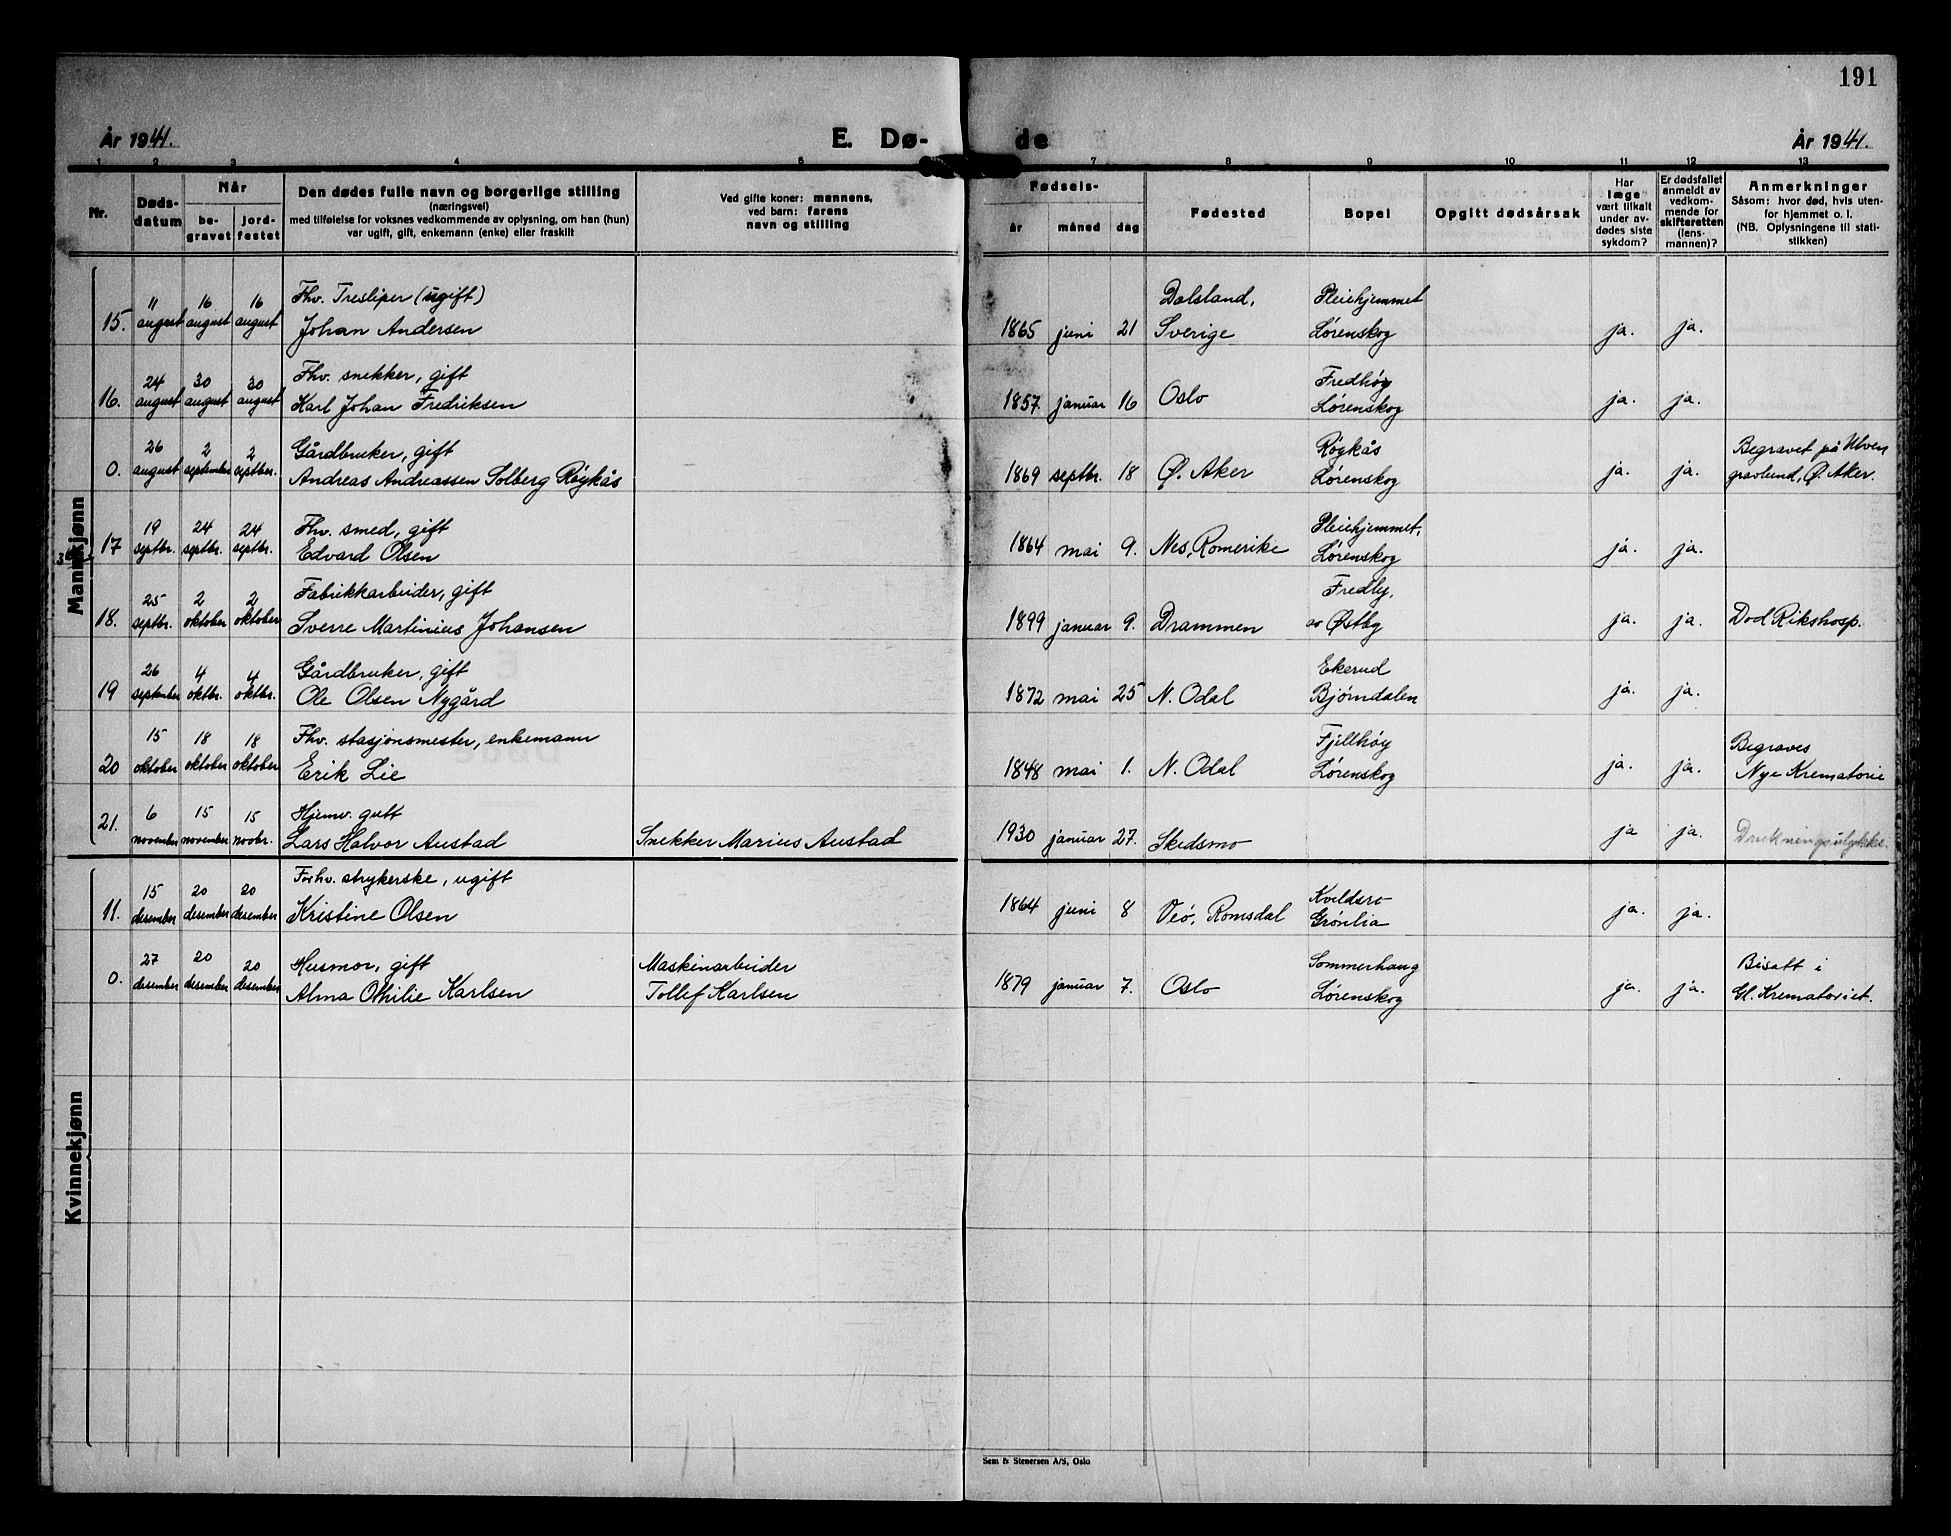 191
År 1941. E. Dø- de År 1941.
1 2 3 4 5 7 8 9 10 11 12 13
Nr.
Døds-
datum
Når
be-
gravet
jord-
festet
Den dødes fulle navn og borgerlige stilling
(næringsvei)
med tilføielse for voksnes vedkommende av oplysning, om han (hun)
var ugift, gift, enkemann (enke) eller fraskilt
Ved gifte koner: mannens,
ved barn: farens
navn og stilling
Fødsels-
år måned dag
Fødested
Bopel
Opgitt dødsårsak
Har
læge
vært tilkalt
under av-
dødes siste
sykdom?
Er dødsfallet
anmeldt av
vedkom-
mende for
skifteretten
(lens-
mannen)?
Anmerkninger
Såsom: hvor død, hvis uten-
for hjemmet o. l.
(NB. Oplysningene til stati-
stikken)
Mannkjønn
11 16 16 Fhv. Tresliper (ugift) Dalsland, Pleiehjemmet
15. august august august Johan Andersen 1865 juni 21 Sverige Lørenskog ja. ja.
24 30 30 Fhv. snekker, gift Fredhøy
16. august august august Karl Johan Fredriksen 1857 januar 16 Oslo Lørenskog ja. ja.
26 2 2 Gårdbruker, gift Røykås Begravet på Ulven
0. august september septbr. Andreas Andreassen Solberg Røykås 1869 septbr. 18 Ø. Aker Lørenskog ja. ja. gravlund, Ø. Aker.
19 24 24 Fhv. smed, gift Pleiehjemmet,
17 septbr. septbr. septbr. Edvard Olsen 1864 mai 9. Nes, Romerike Lørenskog ja. ja.
25 2 2 Fabrikkarbeider, gift Fredly,
18. septbr. oktober oktober Sverre Martinius Johansen 1899 januar 9. Drammen av Østby ja. ja. Død Rikshosp.
26 4 4 Gårdbruker, gift Ekerud
19 september oktbr. oktbr. Ole Olsen Nygård 1872 mai 25 N. Odal Bjørndalen ja. ja.
15 18 18 Fhv. stasjonsmester, enkemann Fjellhøy Begraves
20 oktober oktober oktober Erik Lie 1848 mai 1. N. Odal Lørenskog ja. ja. Nye Krematorie
6 15 15 Hjemv. gutt
21. november november novbr. Lars Halvor Austad Snekker Marius Austad 1930 januar 27. Skedsmo ja ja. Drukningsulykke.
Kvinnekjønn
15 20 20 Forhv. strykerske, ugift Kveldsro
11. desember desember desember Kristine Olsen 1864 juni 8 Veø, Romsdal Grønlia ja. ja.
27 20 20 Husmor, gift Maskinarbeider Sommerhaug Bisatt i
0. desember desember desember Alma Othilie Karlsen Tollef Karlsen 1879 januar 7. Oslo Lørenskog ja. ja. Gl. Krematoriet.
Sem & Stenersen A/S, Oslo